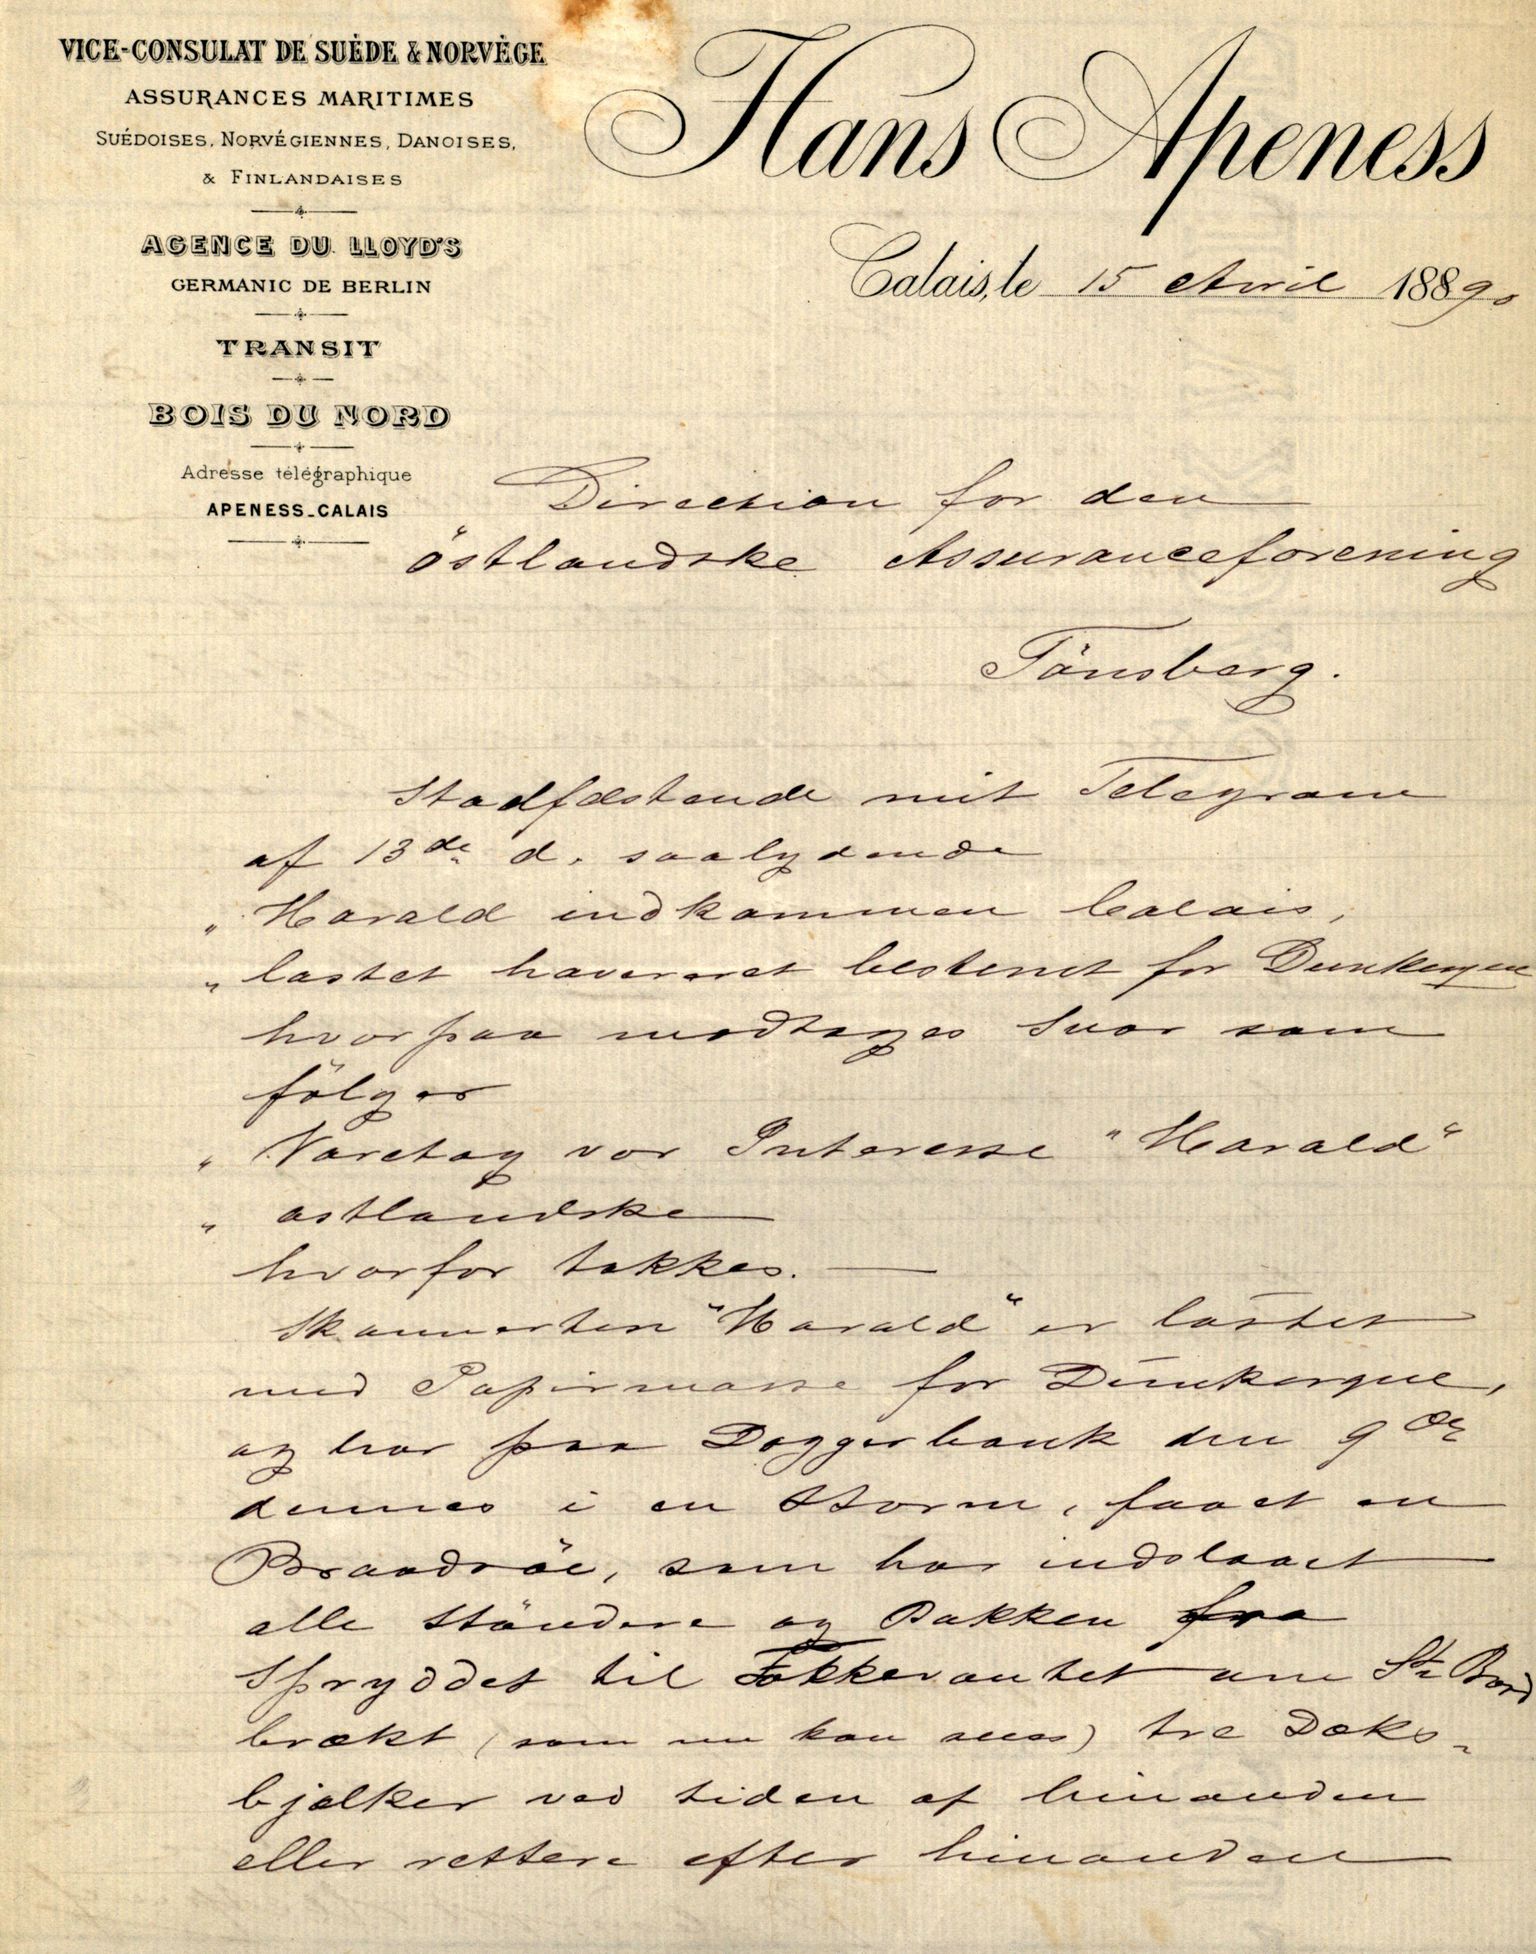 VICE-CONSULAT DE SUÉDE & NORVÉGE
ASSURANCES MARITIMES
SUÉDOISES, NORVÉGIENNES, DANOISES,
& FINLANDAISES
AGENCE DU LLOYD'S
GERMANIC DE BERLIN
TRANSIT
BOIS DU NORD
Adresse télégraphique
APENESS_CALAIS
Hans Apeness
Calais, le 15 Avril 1889.
Direction for den
östlandske Assuranceforening
Tönsberg.
Stadfæstende mit Telegram
af 13de d. saalydende
„ Harald indkommen Calais,
„ lastet havareret bestemt for Dunkerque
hvorpaa modtages Svar som
fölger
„ Varetag vor Interesse "Harald"
„ ostlandske
hvorfor takkes.
Skonnerten "Harald" er lastet
med Papirmasse for Dunkerque,
og har paa Doggerbank den 9de
dennes i en Storm, faaet en
Braadsöe, som har indslaaet
alle Stöndere og Bakken fra
Spryddet til Fokkevantet om St. Bord
brækt (som nu kan sees) tre Dæks-
bjælker ved siden af hinanden
eller rettere efter hinanden